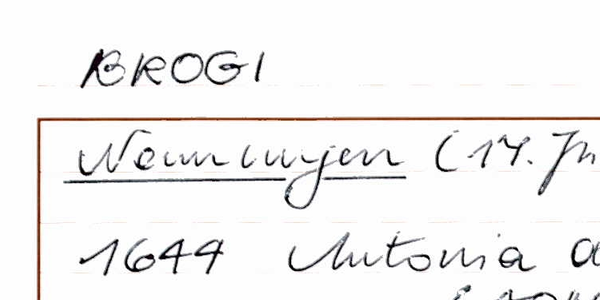 BROGI
Nenningen (17. Jh
1644 Antonia